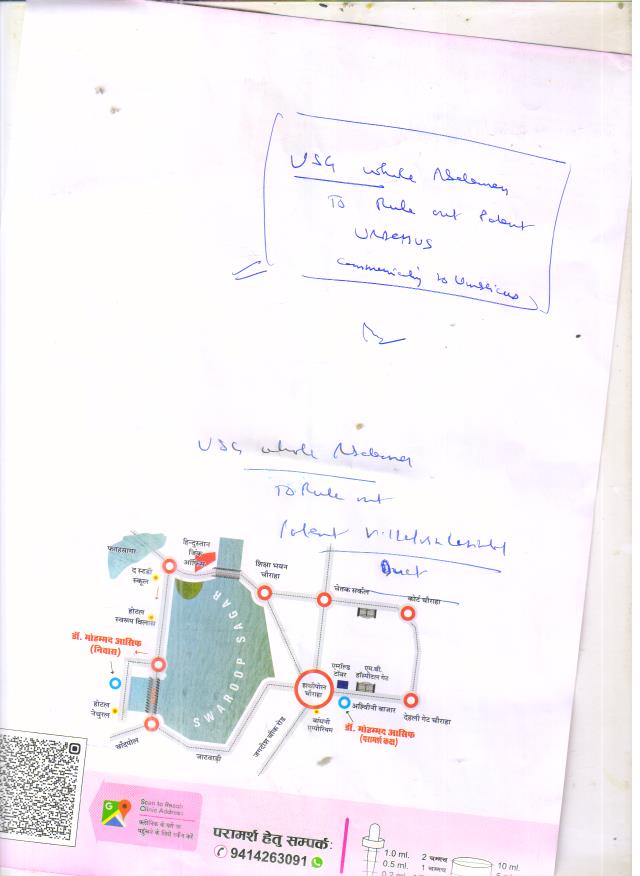 USG whole Abdomen
To Rule out Patent
URACHUS
communicating to Umbilicus
USG whole Abdomen
To Rule out
Patent Vitellointestinal
Duct
फतहसागर
हिन्दुस्तान
जिंक
ऑफिस
शिक्षा भवन
चौराहा
द स्टडी
स्कूल
चेतक सर्कल
कोर्ट चौराहा
होटल
स्वरूप विलास
SWAROOP SAGAR
डॉ. मोहम्मद आसिफ
(निवास)
एमरॉल्ड
टॉवर
एम.बी.
हॉस्पीटल गेट
हाथीपोल
चौराहा
होटल
नेचुरल
अश्विनी बाजार
देहली गेट चौराहा
बांधनी
एम्पोरियम
डॉ. मोहम्मद आसिफ
(परामर्श कक्ष)
चाँदपोल
जाटवाड़ी
जगदीश चौक रोड
Scan to Reach
Clinic Address:
क्लीनिक के पते पर
पहुँचने के लिये स्कैन करें
परामर्श हेतु सम्पर्क:
9414263091
1.0 ml.
0.5 ml.
2 चम्मच
1 चम्मच
10 ml.